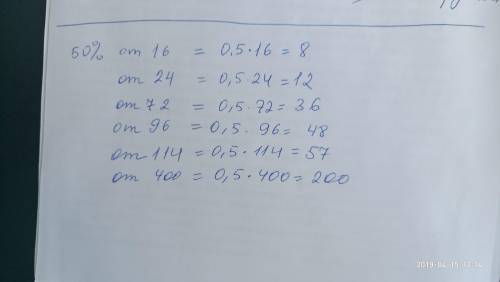 50% от 16 = 0,5·16 = 8
от 24 = 0,5·24 = 12
от 72 = 0,5·72 = 36
от 96 = 0,5·96 = 48
от 114 = 0,5·114 = 57
от 400 = 0,5·400 = 200